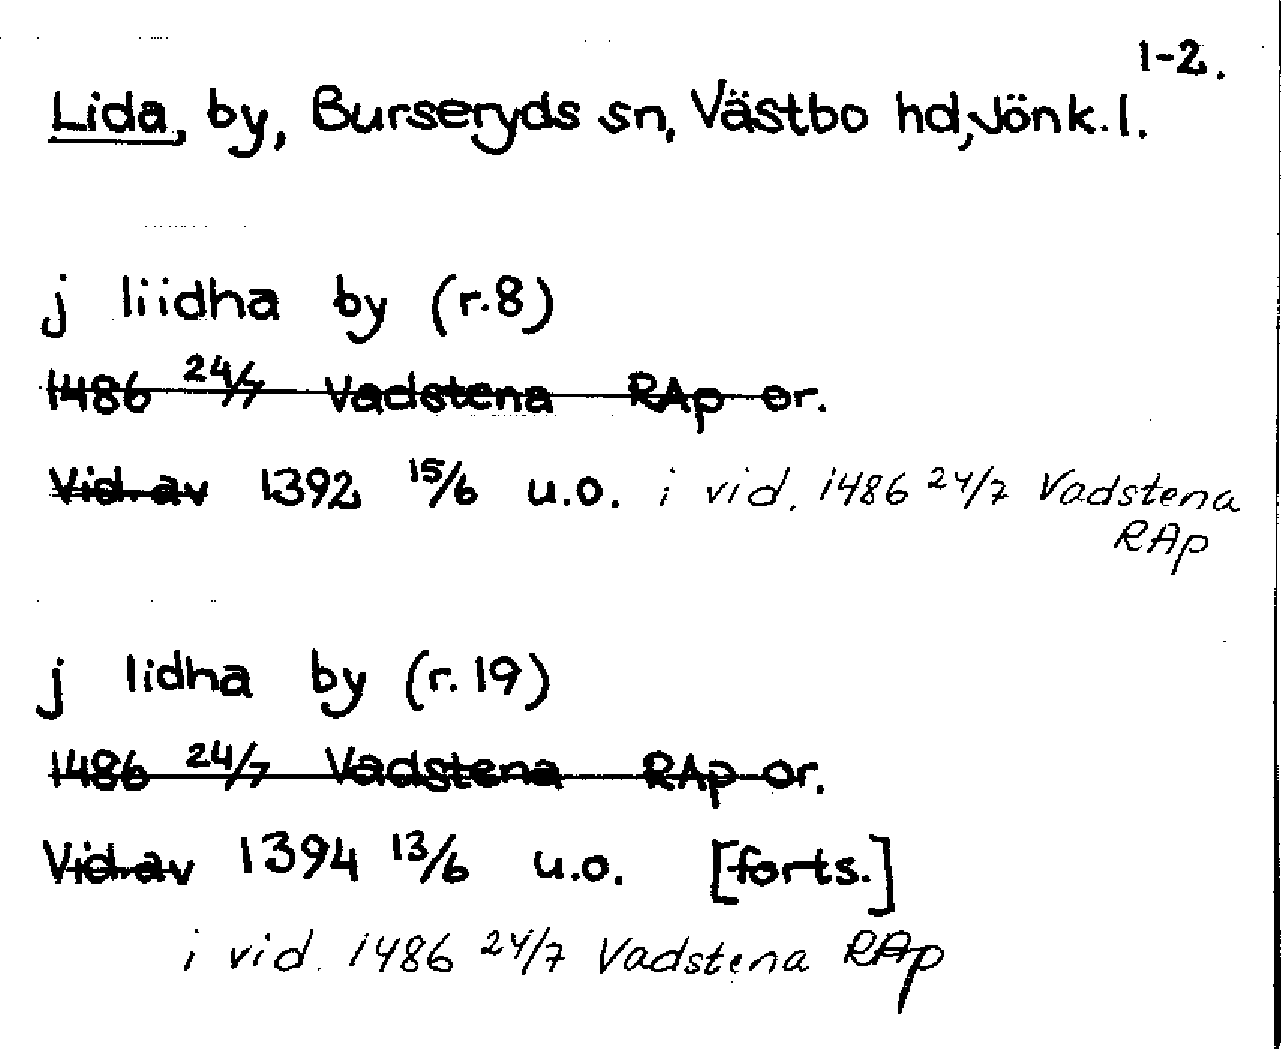 1-2.
Lida, by, Burseryds sn, Västbo hd, Jönk. l.
j liidha by (r.8)
1486 24/7 Vadstena RAp or.
Vid. av 1392 15/6 u.o. i vid. 1486 24/7 Vadstena
RAp
j lidha by (r. 19)
1486 24/7 Vadstena RAp or.
Vid. av 1394 13/6 u.o. [forts.]
i vid. 1486 24/7 Vadstena RAp